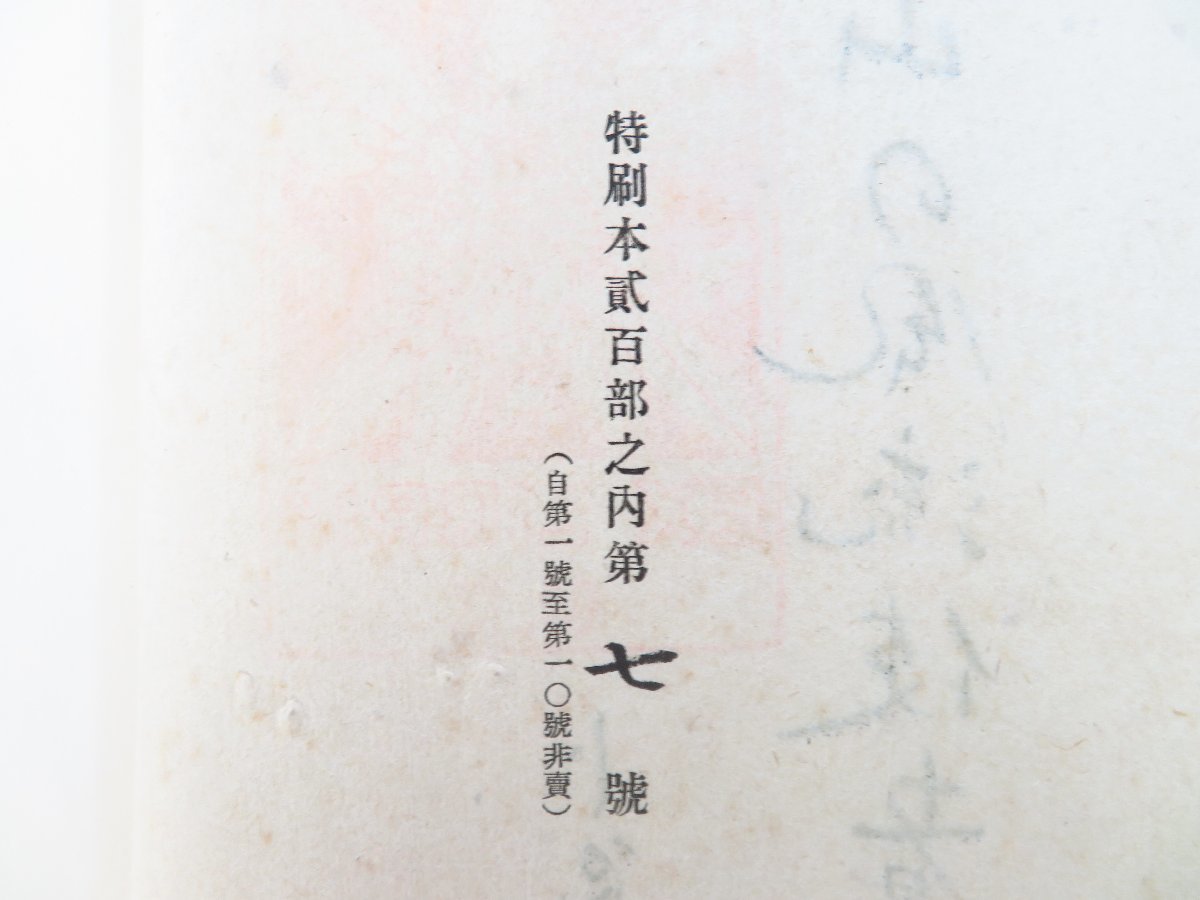 特刷本貳百部之內第七號
（自第一號至第一〇號非賣）